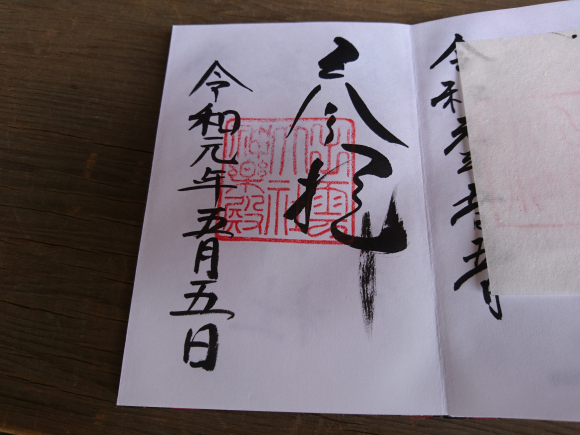 奉拝
令和元年五月五日
出雲
大社
神楽殿
令和元年五月五日